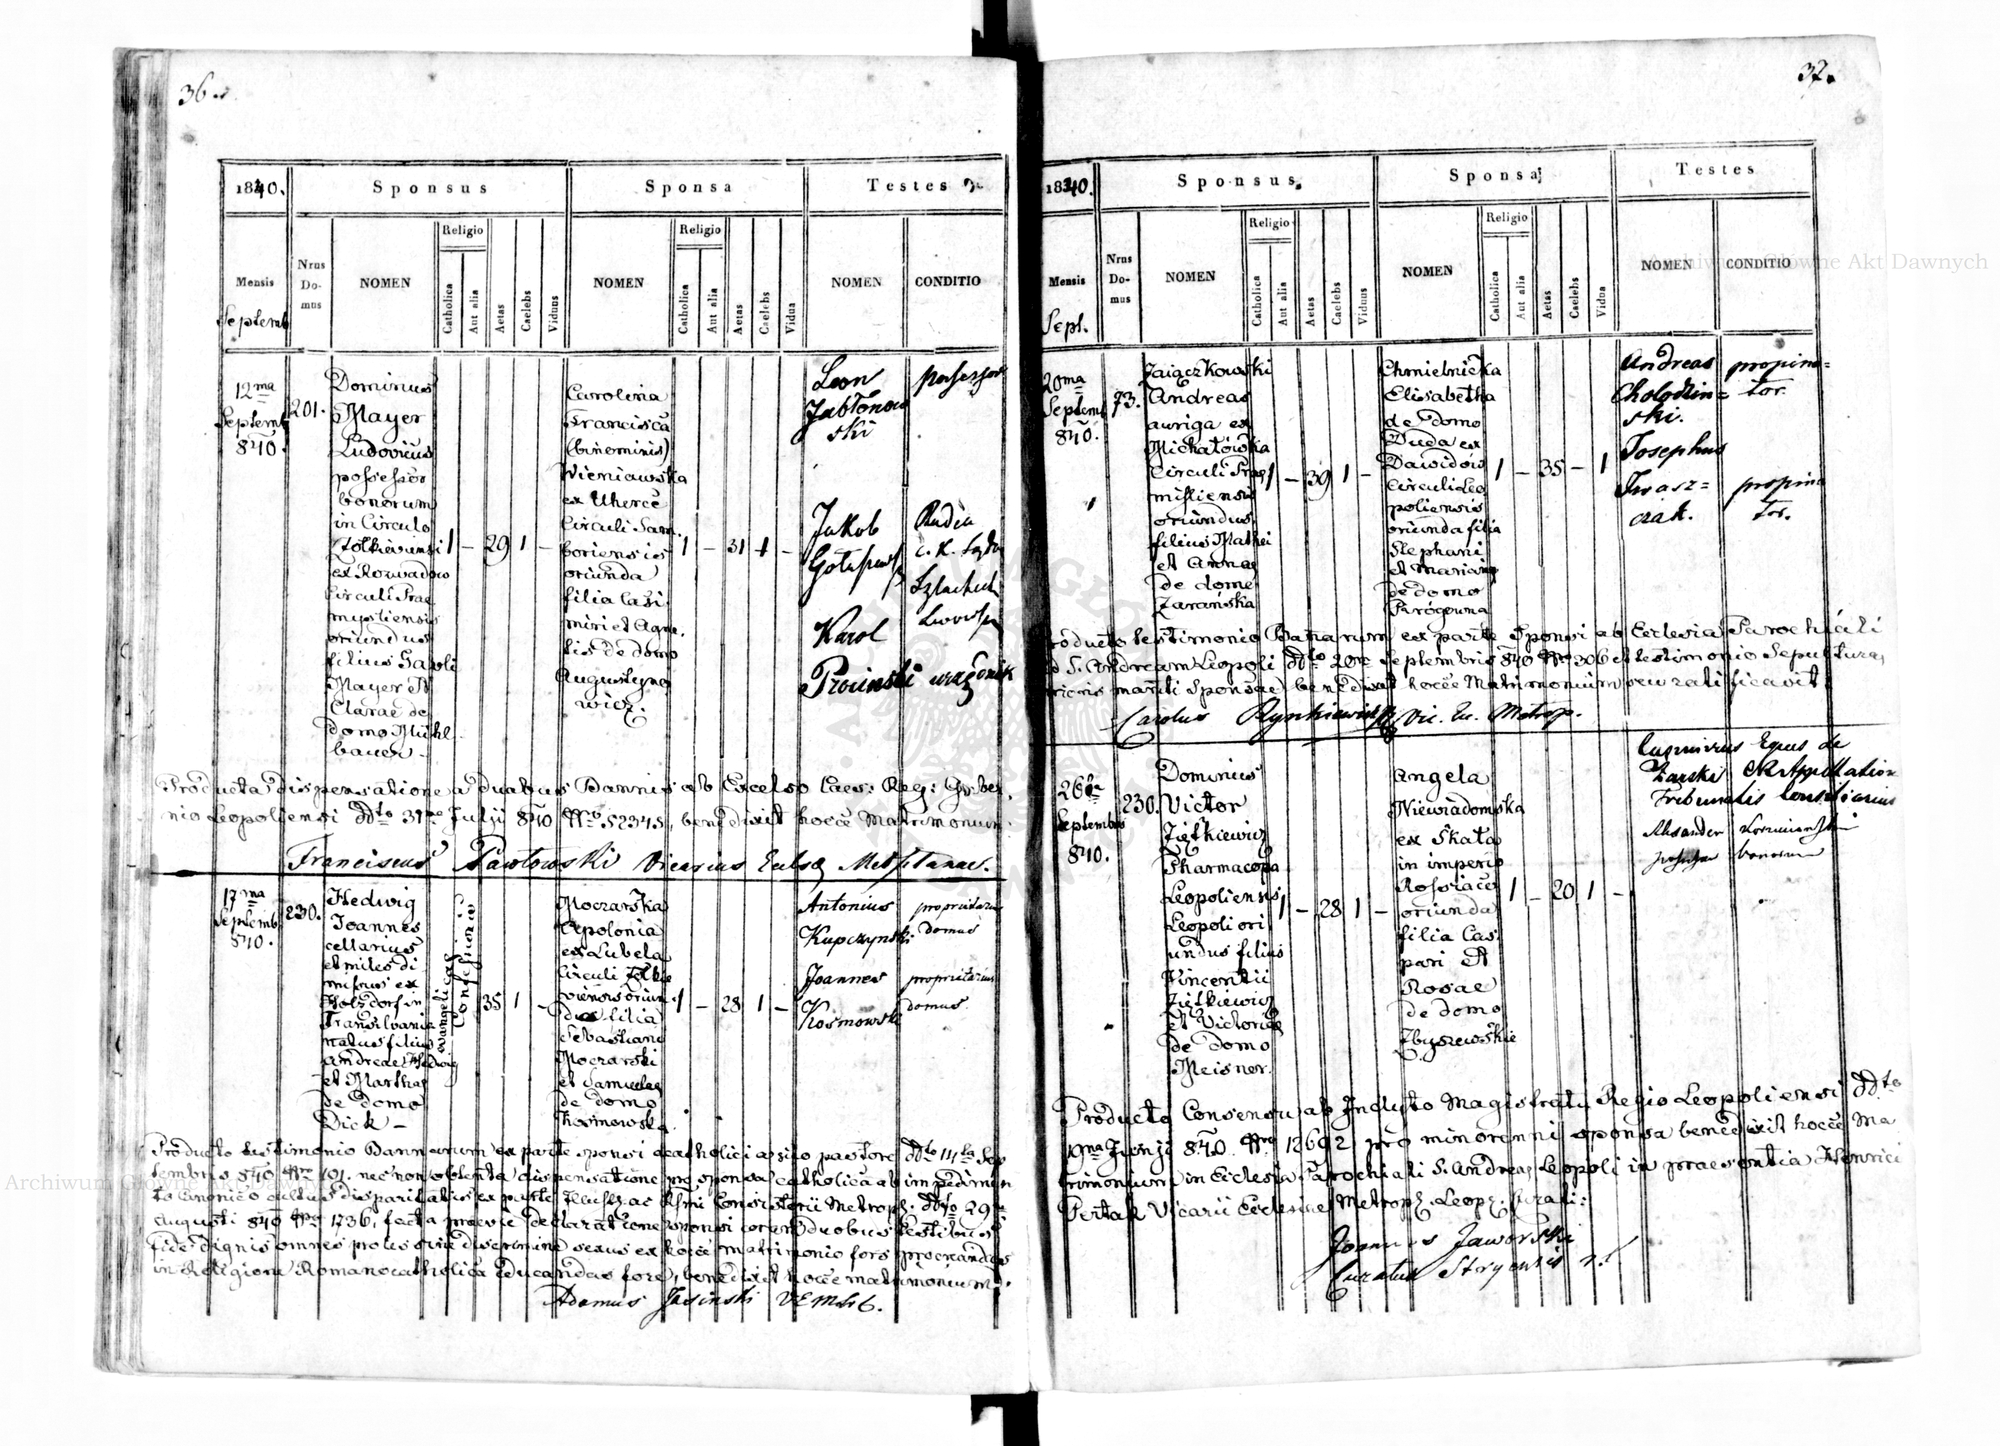 36.
1840.
Sponsus
Sponsa
Testes
Mensis
Septemb
Nrus Domus
NOMEN
Religio
Catholica
Aut alia
Aetas
Caelebs
Viduus
NOMEN
Religio
Catholica
Aut alia
Aetas
Caelebs
Vidua
NOMEN
CONDITIO
12ma
Septemb
840.
201.
Dominus
Mayer
Ludovicus
possessor
bonorum
in Circulo
Zolkieviensi
ex Rozwadow
Circuli Prae
mysliensis
oriundus
filius Pauli
Mayer et
Clarae de
domo Mühl
bauer
1 – 29 1 –
Carolina
Francisca
(binominis)
Wieniawska
ex Uherce
Circuli Sam
boriensis
oriunda
filia Casi
miri et Agne
tis de domo
Augustyno
wicz.
1 – 31 1 –
Leon
Jabłonow
ski
possessor
Jakob
Radca
c. k. Sądu
Szlacheck
Lwowsk
Karol
urzędnik
Producta dispensatione a duabus Bannis ab Excelso Caes: Reg: Guber
nio Leopoliensi ddto 31ma Julii 840 Nro 52345, benedixit hocce Matrimonium
Franciscus Pawłowski Vicarius Eccl. Metptanae.
17ma
Septemb
840.
230.
Hedwig
Joannes
cellarius
et miles di
missus ex
Holzdorf in
Transilvania
natus filius
Andreae Hedwig
et Marthae
de domo
Dick –
Evangelicae
Confessionis
35 1 –
Moczarska
Apolonia
ex Lubela
Circuli Zolkie
viensis oriun
da filia
Sebastiani
Moczarski
et Samuelae
de domo
Kosmowska.
1 – 28 1 –
Antonius
Kupczynski
proprietarius
domus
Joannes
Kosmowski
proprietarius
domus
Producto testimonio Bannorum ex parte sponsi acatholici a suo pastore ddto 14ta Sep
tembris 840 Nro 101. nec non obtenta dispensatione pro sponsa catholica ab impedimen
to canonico cultus disparitatis ex parte Illustr. ac Rssmi Consistorii Metrop. ddto 29
Augusti 840 Nro 1736, facta praevie declaratione sponsi coram duobus testibus
fide dignis omnes proles sine discrimine sexus ex hocce matrimonio fors procreandas
in Religione Romano catholica educandas fore, benedixit hocce matrimonium.
Adamus Jasinski VEMLL.
37.
1840.
Sponsus
Sponsa
Testes
Mensis
Sept.
Nrus Domus
NOMEN
Religio
Catholica
Aut alia
Aetas
Caelebs
Viduus
NOMEN
Religio
Catholica
Aut alia
Aetas
Caelebs
Vidua
NOMEN
CONDITIO
20ma
Septemb
840.
73.
Zaiączkowski
Andreas
auriga ex
Michałówka
Circuli Prae
misliensis
oriundus
filius Mathei
et Annae
de domo
Zarańska
1 – 39 1 –
Chmielnicka
Elisabetha
de domo
Duda ex
Dawidow
Circuli Leo
poliensis
oriunda filia
Stephani
et Mariannae
de domo
1 – 35 – 1
Andreas
Chołodzin=
ski.
propina=
tor.
Josephus
Iwasz=
czak.
propina
tor.
Producto testimonio Bannorum ex parte Sponsi ab Ecclesia Parochiali
ad S. Andream Leopoli ddto 20ma Septembris 840 Nro 306 et testimonio Sepulturae
prioris mariti Sponsae benedixit hocce Matrimonium seu ratificavit
Carolus Rynkiewicz Vic. Ec. Metrop.
26ta
Septembris
840.
230.
Dominus
Victor
Ziętkiewicz
Pharmacopa
Leopoliensis
Leopoli ori
undus filius
Vincentii
Ziętkiewicz
et Victoriae
de domo
Meisner.
1 – 28 1 –
Angela
Niewiadomska
ex Skała
in imperio
Rossiaco
oriunda
filia Cas
pari et
Rosae
de domo
Zbyszewskie
1 – 20 1 –
Casimirus Eques de
Zarski CR Appellation
Tribunalis Consiliarius
possessor bonorum
Producto Consensu ab Inclyto Magistratu Regio Leopoliensi ddto
19ma Junji 840. Nro 12692 pro minorenni sponsa benedixit hocce Ma
trimonium in Ecclesia Parochiali S. Andreae Leopoli in praesentia Henrici
Pertak Vicarii Ecclesiae Metrop. Leop. Curati:
Joannes Jaworski
Curatus Stryensis
Archiwum Główne Akt Dawnych
Archiwum Główne Akt Dawnych